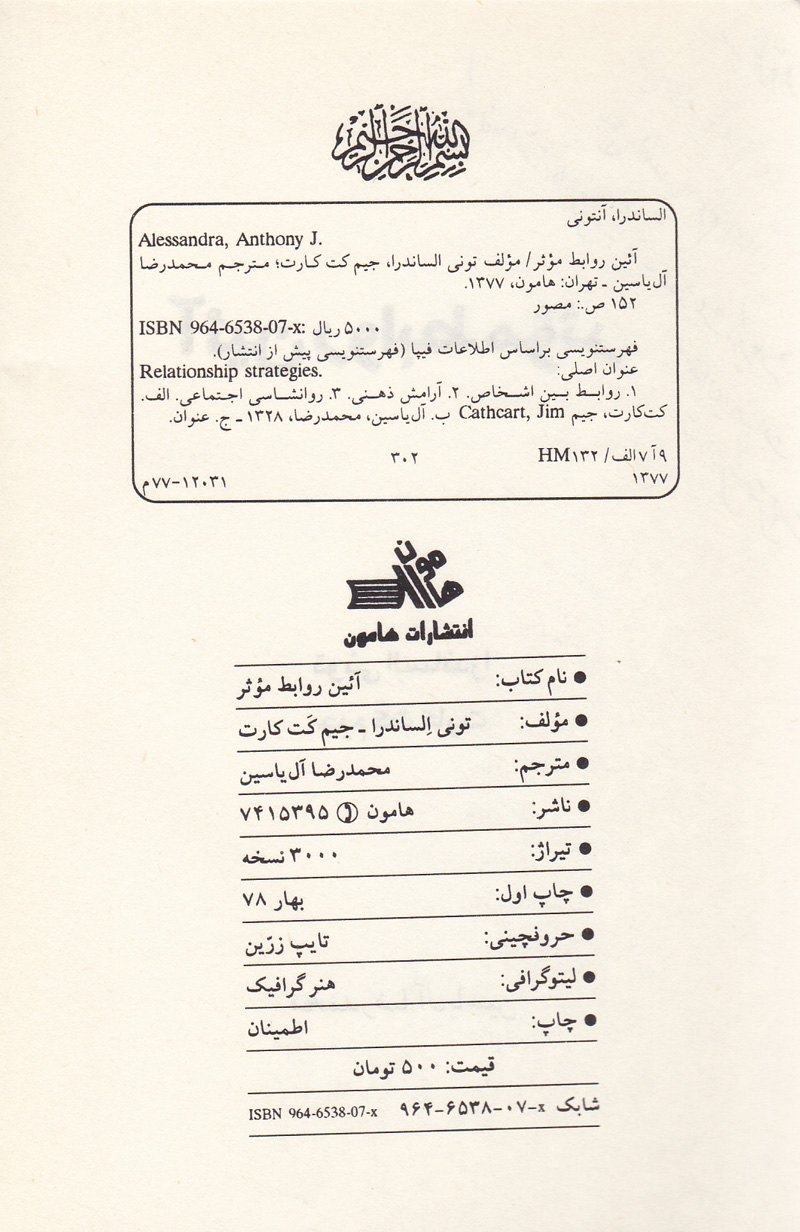 بسم الله الرحمن الرحیم
الساندرا، آنتونی
Alessandra, Anthony J.
آئین روابط مؤثر / مؤلف تونی الساندرا، جیم کت کارت؛ مترجم محمدرضا
آل‌یاسین ـ تهران: هامون، ۱۳۷۷.
۱۵۲ ص.: مصور
ISBN 964-6538-07-x: ۵۰۰۰ ریال
فهرستنویسی براساس اطلاعات فیپا (فهرستنویسی پیش از انتشار).
عنوان اصلی: Relationship strategies.
۱. روابط بین اشخاص. ۲. آرامش ذهنی. ۳. روانشاسی اجتماعی. الف.
کت‌کارت، جیم Cathcart, Jim ب. آل‌یاسین، محمدرضا، ۱۳۲۸ ـ ج. عنوان.
۹آ۷الف/ HM۱۳۲ ۳۰۲
۱۳۷۷ ۷۷-۱۲۰۳۱م
هامون
انتشارات هامون
● نام کتاب: آئین روابط مؤثر
● مؤلف: تونی اِلساندرا ـ جیم کَت کارت
● مترجم: محمدرضا آل‌یاسین
● ناشر: هامون ✆ ۷۴۱۵۳۹۵
● تیراژ: ۳۰۰۰ نسخه
● چاپ اول: بهار ۷۸
● حروفچینی: تایپ زرّین
● لیتوگرافی: هنر گرافیک
● چاپ: اطمینان
قیمت: ۵۰۰ تومان
شابک ۹۶۴-۶۵۳۸-۰۷-x ISBN 964-6538-07-x